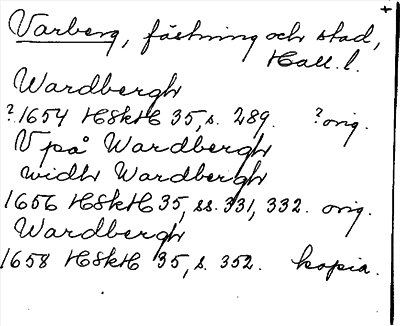 Varberg, fästning och stad,
Hall. l.
Wardbergh
?1654 HSkH 35, s. 289. ?orig.
V på Wardbergh
widh Wardbergh
1656 HSkH 35, ss. 331, 332. orig.
Wardbergh
1658 HSkH 35, s. 352. kopia.